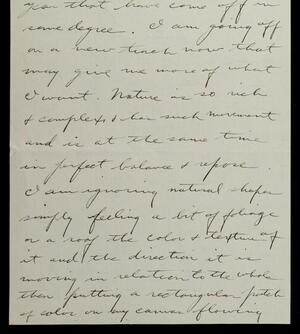 year that have come off in
some degree. I am going off
on a new track now that
may give me more of what
I want. Nature is so rich
& complex & has such movement
and is at the same time
in perfect balance & repose.
I am ignoring natural shapes
simply feeling a bit of foliage
or a roof the color & texture of
it and the direction it is
moving in relation to the whole
then putting a rectangular patch
of color on my canvas flowing